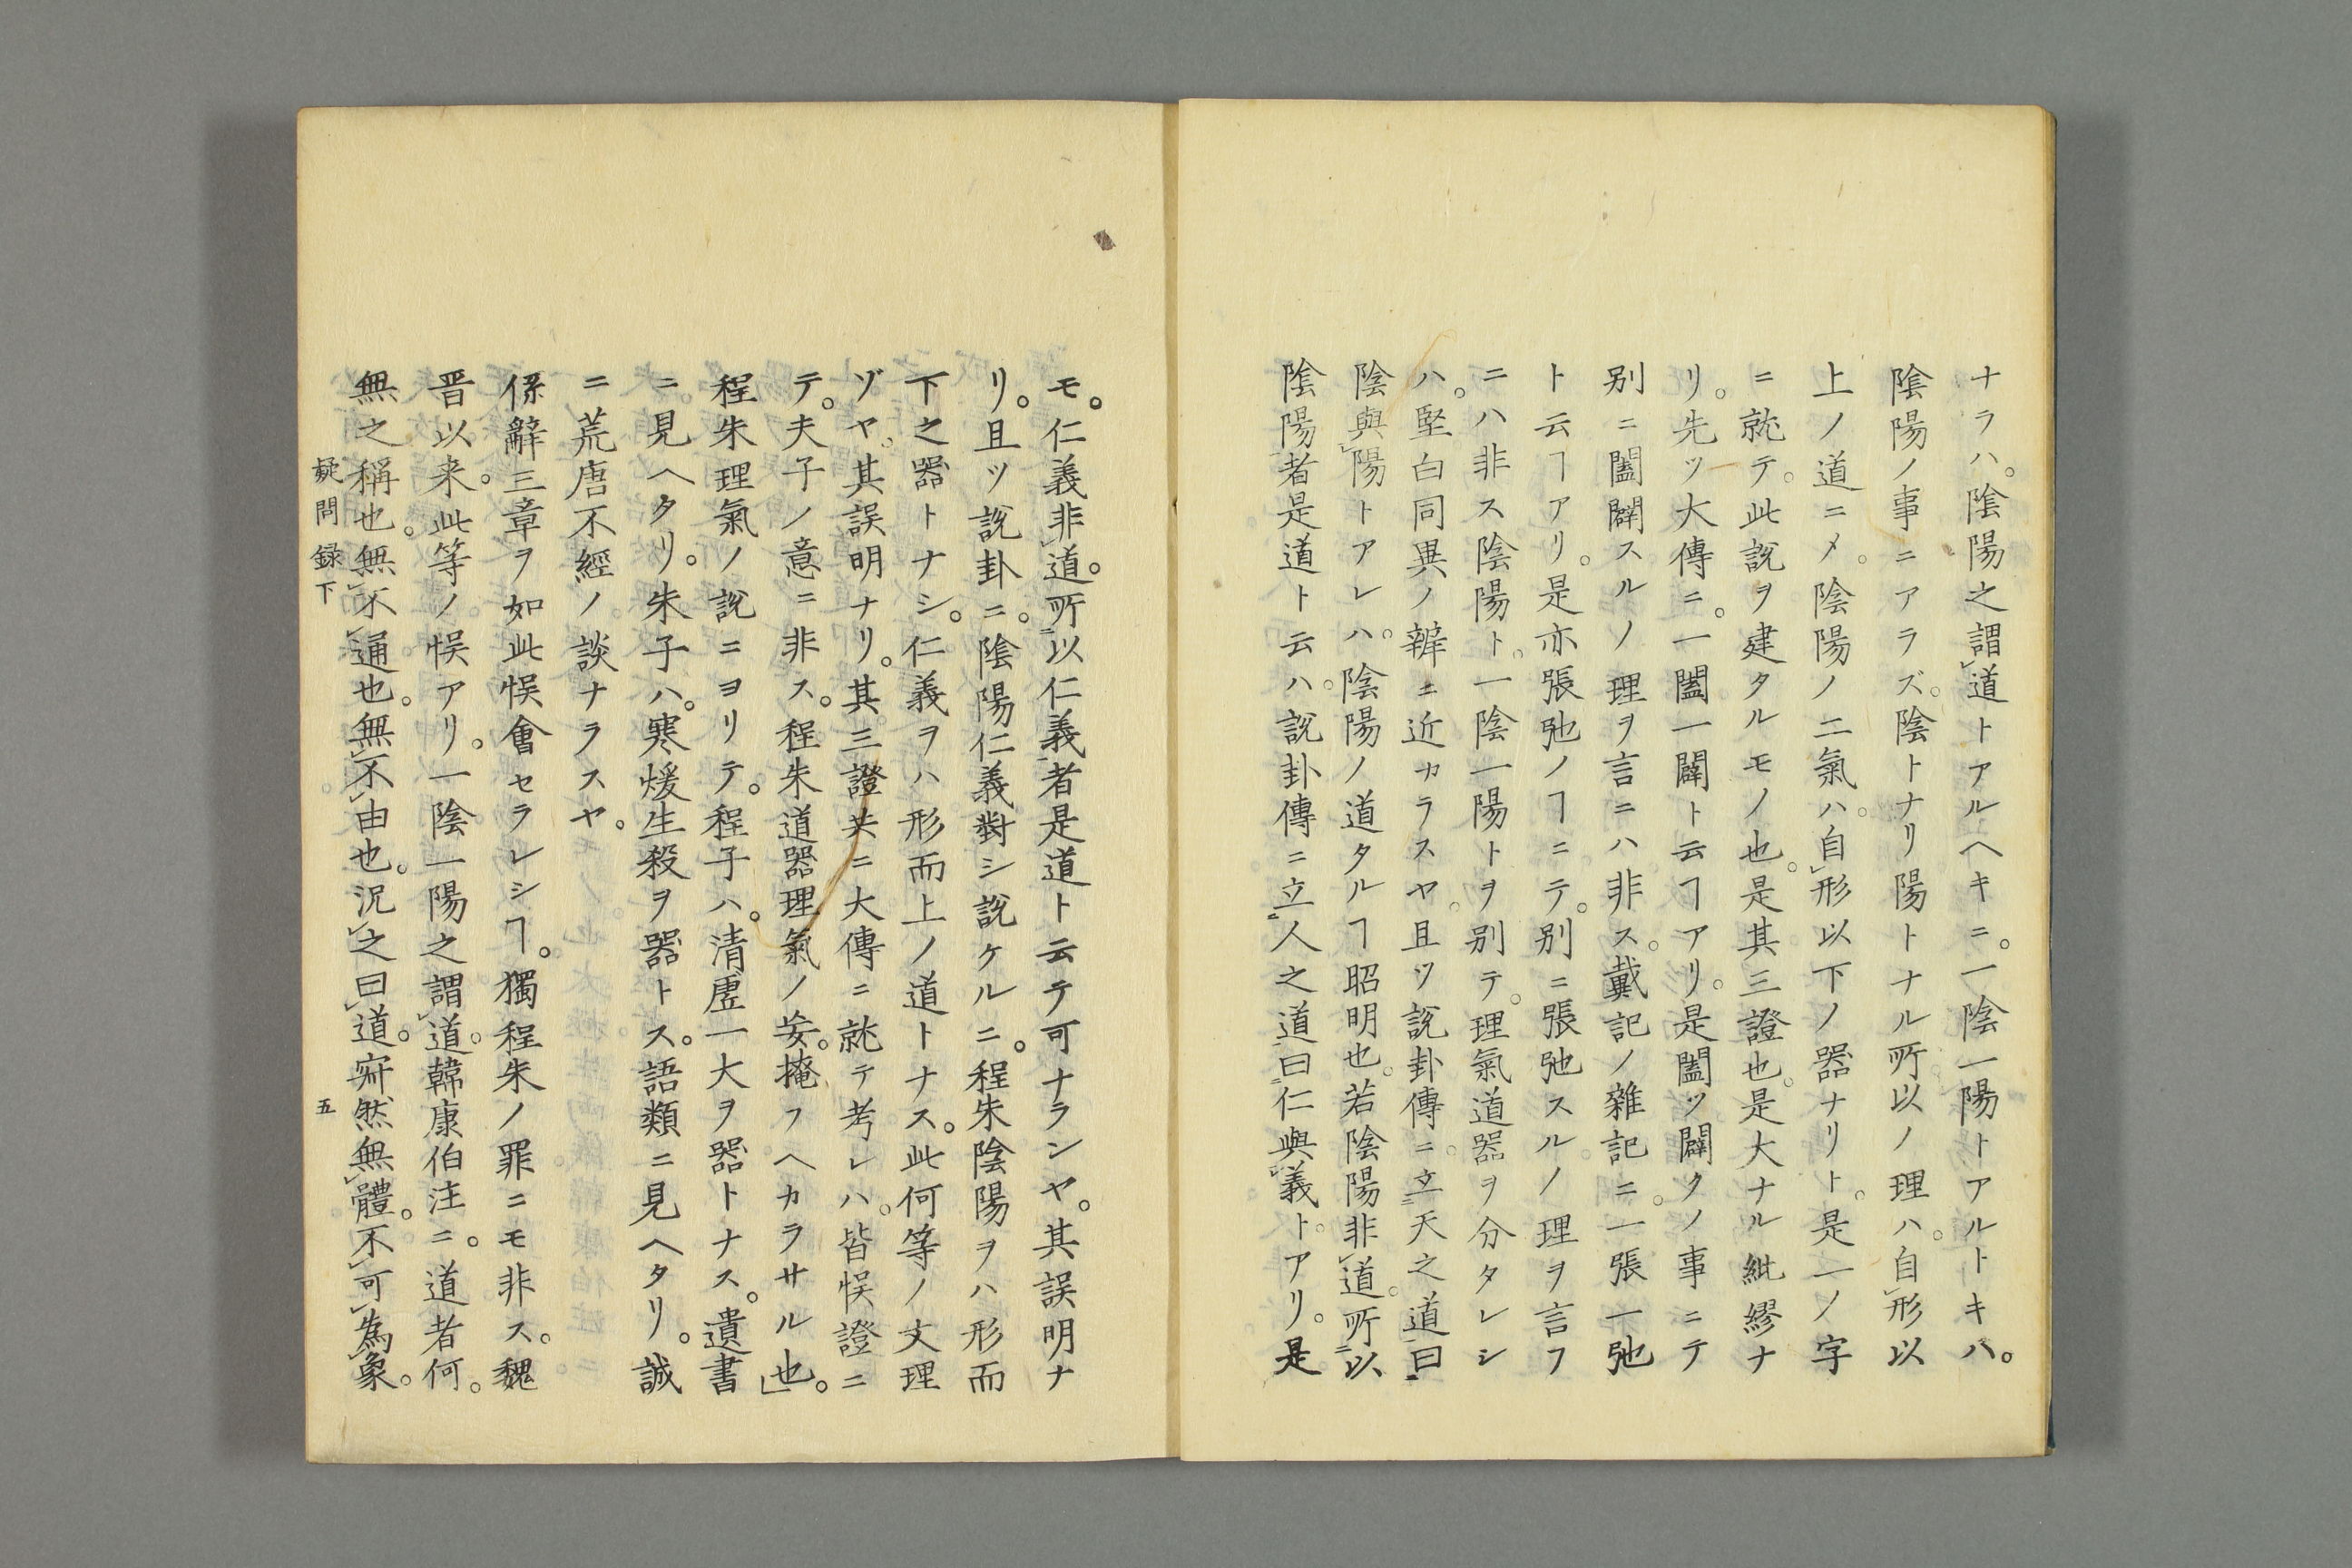 ナラハ。陰陽之謂道トアルヘキニ。一陰一陽トアルトキハ。
陰陽ノ事ニアラズ。陰トナリ陽トナル所以ノ理ハ。自形以
上ノ道ニメ。陰陽ノ二氣ハ。自形以下ノ器ナリト。是一ノ字
ニ就テ。此説ヲ建タルモノ也。是其三證也。是大ナル紕繆ナ
リ。先ツ大傳ニ。一闔一闢ト云ヿアリ。是闔ツ闢クノ事ニテ
別ニ闔闢スルノ理ヲ言ニハ非ス。戴記ノ雜記ニ。一張一弛
ト云ヿアリ。是亦張弛ノヿニテ。別ニ張弛スルノ理ヲ言フ
ニハ非ス陰陽ト。一陰一陽トヲ別テ。理氣道器ヲ分タレシ
ハ。堅白同異ノ辨ニ近カラスヤ。且ツ説卦傳ニ。立天之道曰
陰與陽トアレハ。陰陽ノ道タルヿ昭明也。若陰陽非道。所以
陰陽者是道ト云ハ。説卦傳ニ立人之道曰仁與義ト。アリ。是
モ。仁義非道。所以仁義者是道ト云テ可ナランヤ。其誤明ナ
リ。且ツ説卦ニ。陰陽仁義對シ説ケルニ。程朱陰陽ヲハ形而
下之器トナシ。仁義ヲハ形而上ノ道トナス。此何等ノ文理
ゾヤ。其誤明ナリ。其三證共ニ大傳ニ就テ考レハ。皆悞證ニ
テ。夫子ノ意ニ非ス。程朱道器理氣ノ妄。掩フヘカラサル也。
程朱理氣ノ説ニヨリテ。程子ハ。清虚一大ヲ器トナス。遺書
ニ見ヘタリ。朱子ハ。寒煖生殺ヲ器トス。語類ニ見ヘタリ。誠
ニ荒唐不經ノ談ナラスヤ。
係辭三章ヲ如此悞會セラレシヿ。獨程朱ノ罪ニモ非ス。魏
晋以来。此等ノ悞アリ。一陰一陽之謂道。韓康伯注ニ。道者何。
無之稱也。無不通也。無不由也。況之曰道。㝥然無體。不可為象。
疑問録下　五